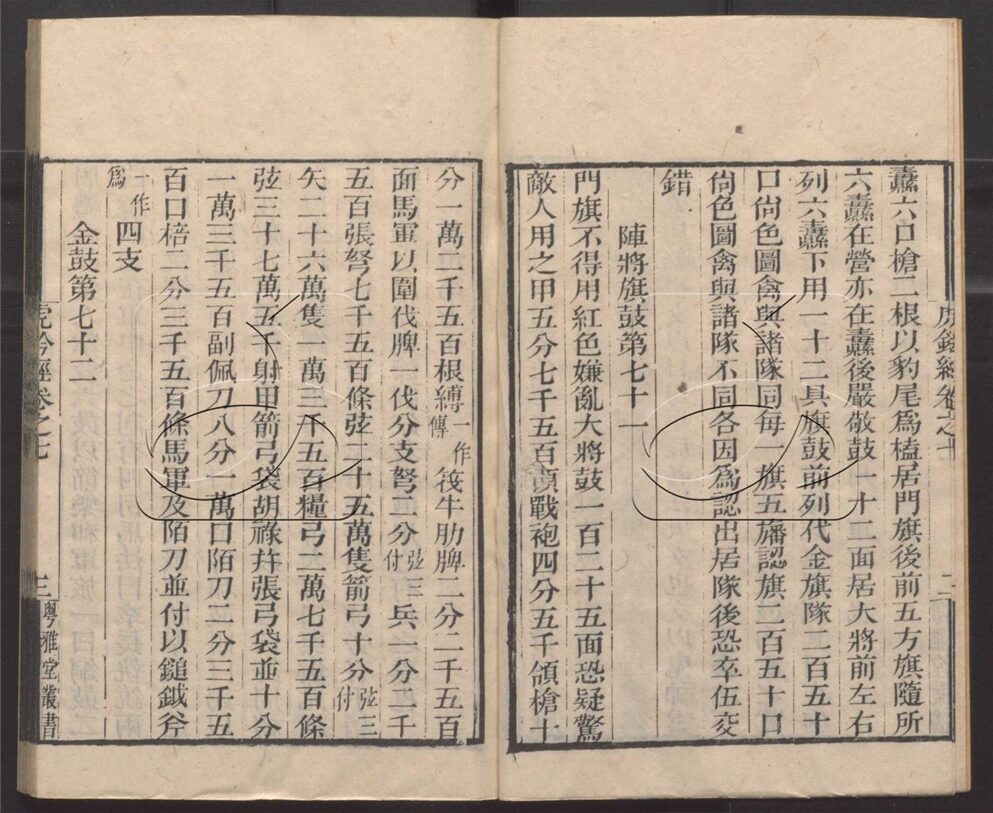 纛六口槍二根以豹尾爲榼居門旗後前五方旗隨所
六纛在營亦在纛後嚴敬鼓一十二面居大將前左右
列六纛下用一十二具旗鼓前列代金旗隊二百五十
口尙色圖禽與諸隊同每一旗五旛認旗二百五十口
尙色圖禽與諸隊不同各因爲認出居隊後恐卒伍交
錯
陣將旗鼓第七十一
門旗不得用紅色嫌亂大將鼓一百二十五面恐疑驚
敵人用之甲五分七千五百領戰袍四分五千領槍十
虎鈐經卷之七
二
分一萬二千五百根縛一作傳筏牛肋脾二分二千五百
面馬軍以圍伐脾一伐分支弩二分弦三付兵一分二千
五百張弩七千五百條弦二十五萬隻箭弓十分弦三付
矢二十六萬隻一萬三千五百糧弓二萬七千五百條
弦三十七萬五千射甲箭弓袋胡祿弁張弓袋並十分
一萬三千五百副佩刀八分一萬口陌刀二分三千五
百口棓二分三千五百條馬軍及陌刀並付以鎚鉞斧
一作爲四支
金鼓第七十二
虎鈐經卷之七
三
粵雅堂叢書